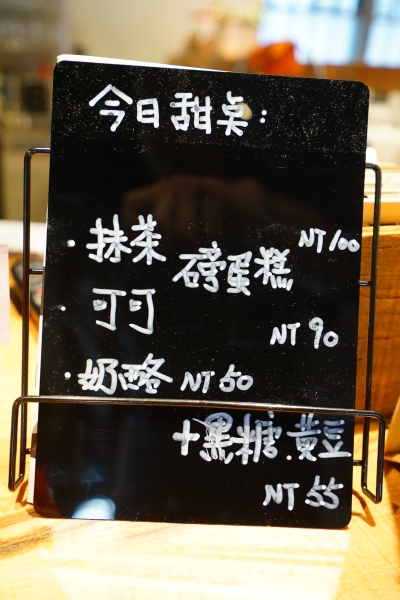 今日甜桌:
·抹茶 磅蛋糕 NT100
·可可 NT90
·奶酪 NT50
+黑糖.黃豆
NT55